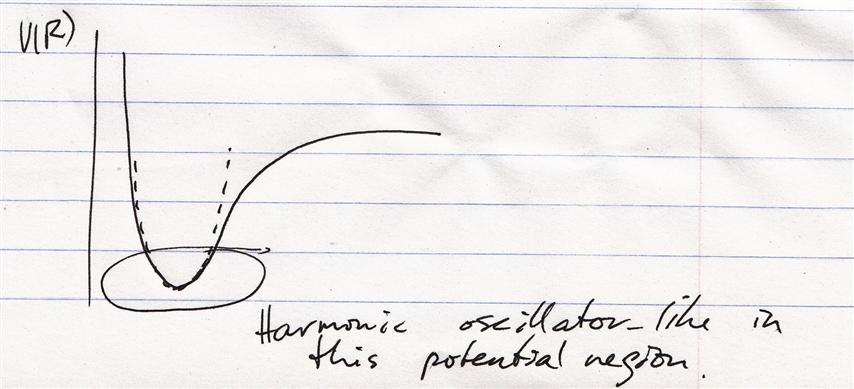 V(R)
Harmonic oscillator-like in
this potential region.